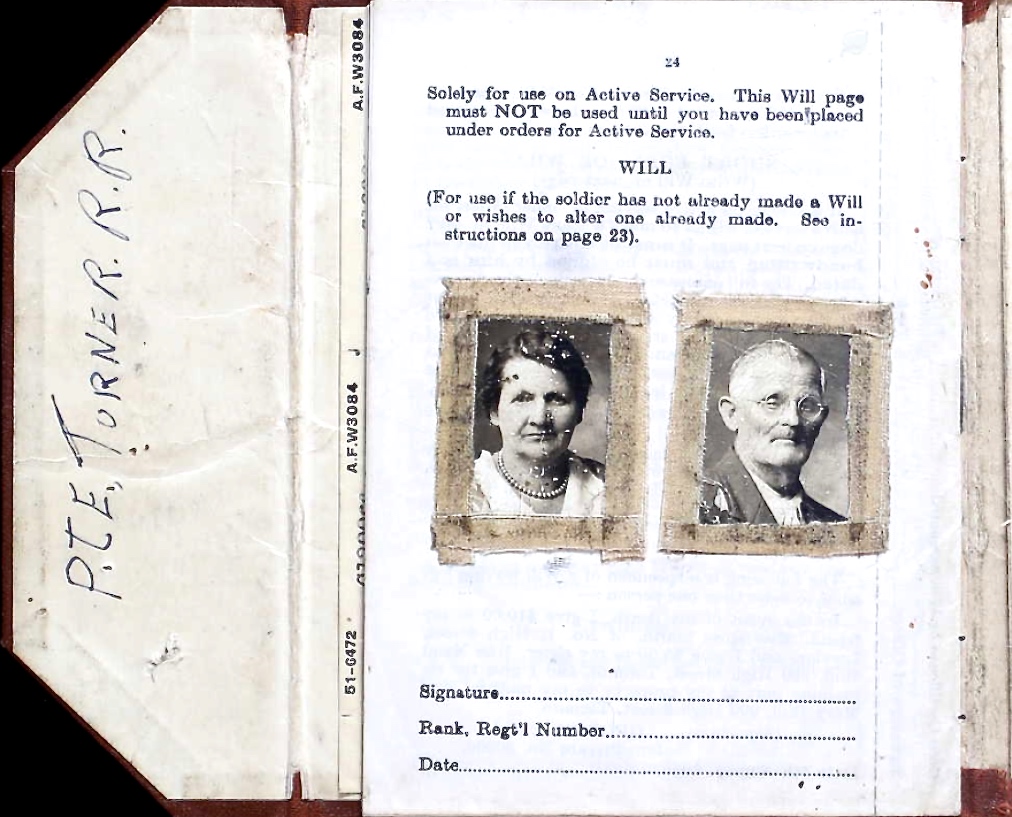 PTE, TURNER. R. R.
A.F.W3084
51-6472
A.F.W3084
J
24
Solely for use on Active Service. This Will page
must NOT be used until you have been placed
under orders for Active Service.
WILL
(For use if the soldier has not already made a Will
or wishes to alter one already made. See in-
structions on page 23).
Signature
Rank, Regt'l Number
Date